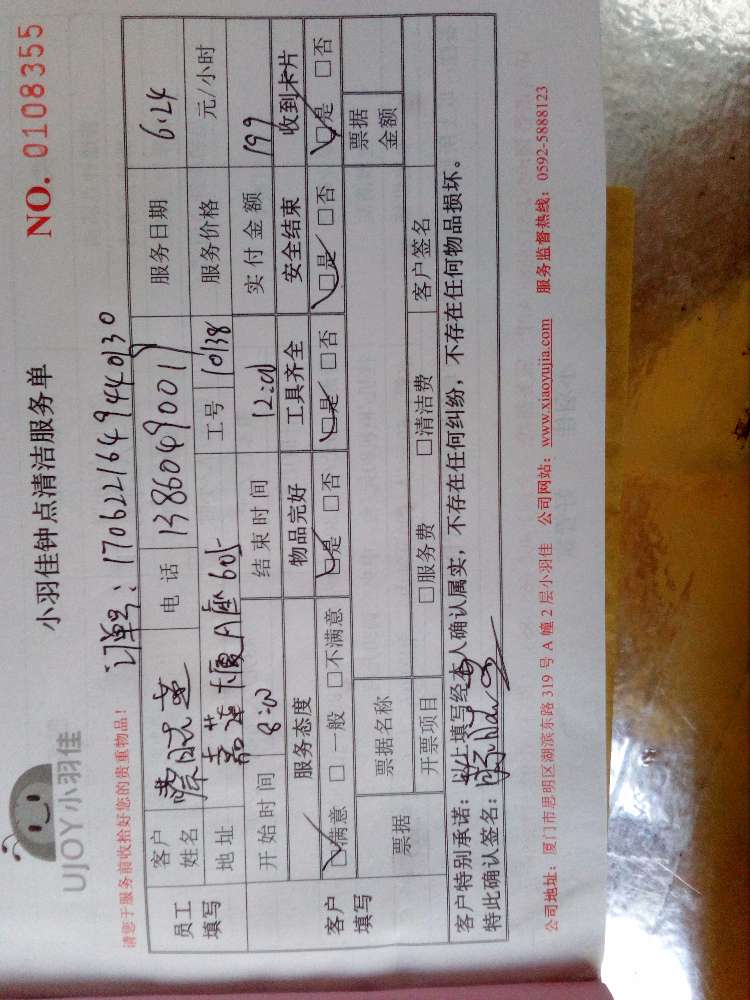 UJOY小羽佳
小羽佳钟点清洁服务单
NO. 0108355
请您于服务前收拾好您的贵重物品!
订单号: 170622164944030
员工填写
客户姓名
电话 13860490017
服务日期 6.24
地址 嘉莲大厦A座605
工号 10138
服务价格 元/小时
客户填写
开始时间 8:00 结束时间 12:00 实付金额 199
服务态度 物品完好 工具齐全 安全结束 收到卡片
☑满意 □一般 □不满意 ☑是 □否 ☑是 □否 ☑是 □否 ☑是 □否
票据 票据名称 票据金额
开票项目 □服务费 □清洁费 客户签名
客户特别承诺: 以上填写经本人确认属实, 不存在任何纠纷, 不存在任何物品损坏。
特此确认签名:
公司地址: 厦门市思明区湖滨东路 319 号 A 幢 2 层小羽佳 公司网站: www.xiaoyujia.com 服务监督热线: 0592-5888123